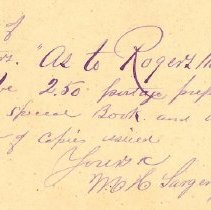 of
"As to Rogers
2.50 postage prep
special book and
of copies issued
Yours &
W. H. Sargen